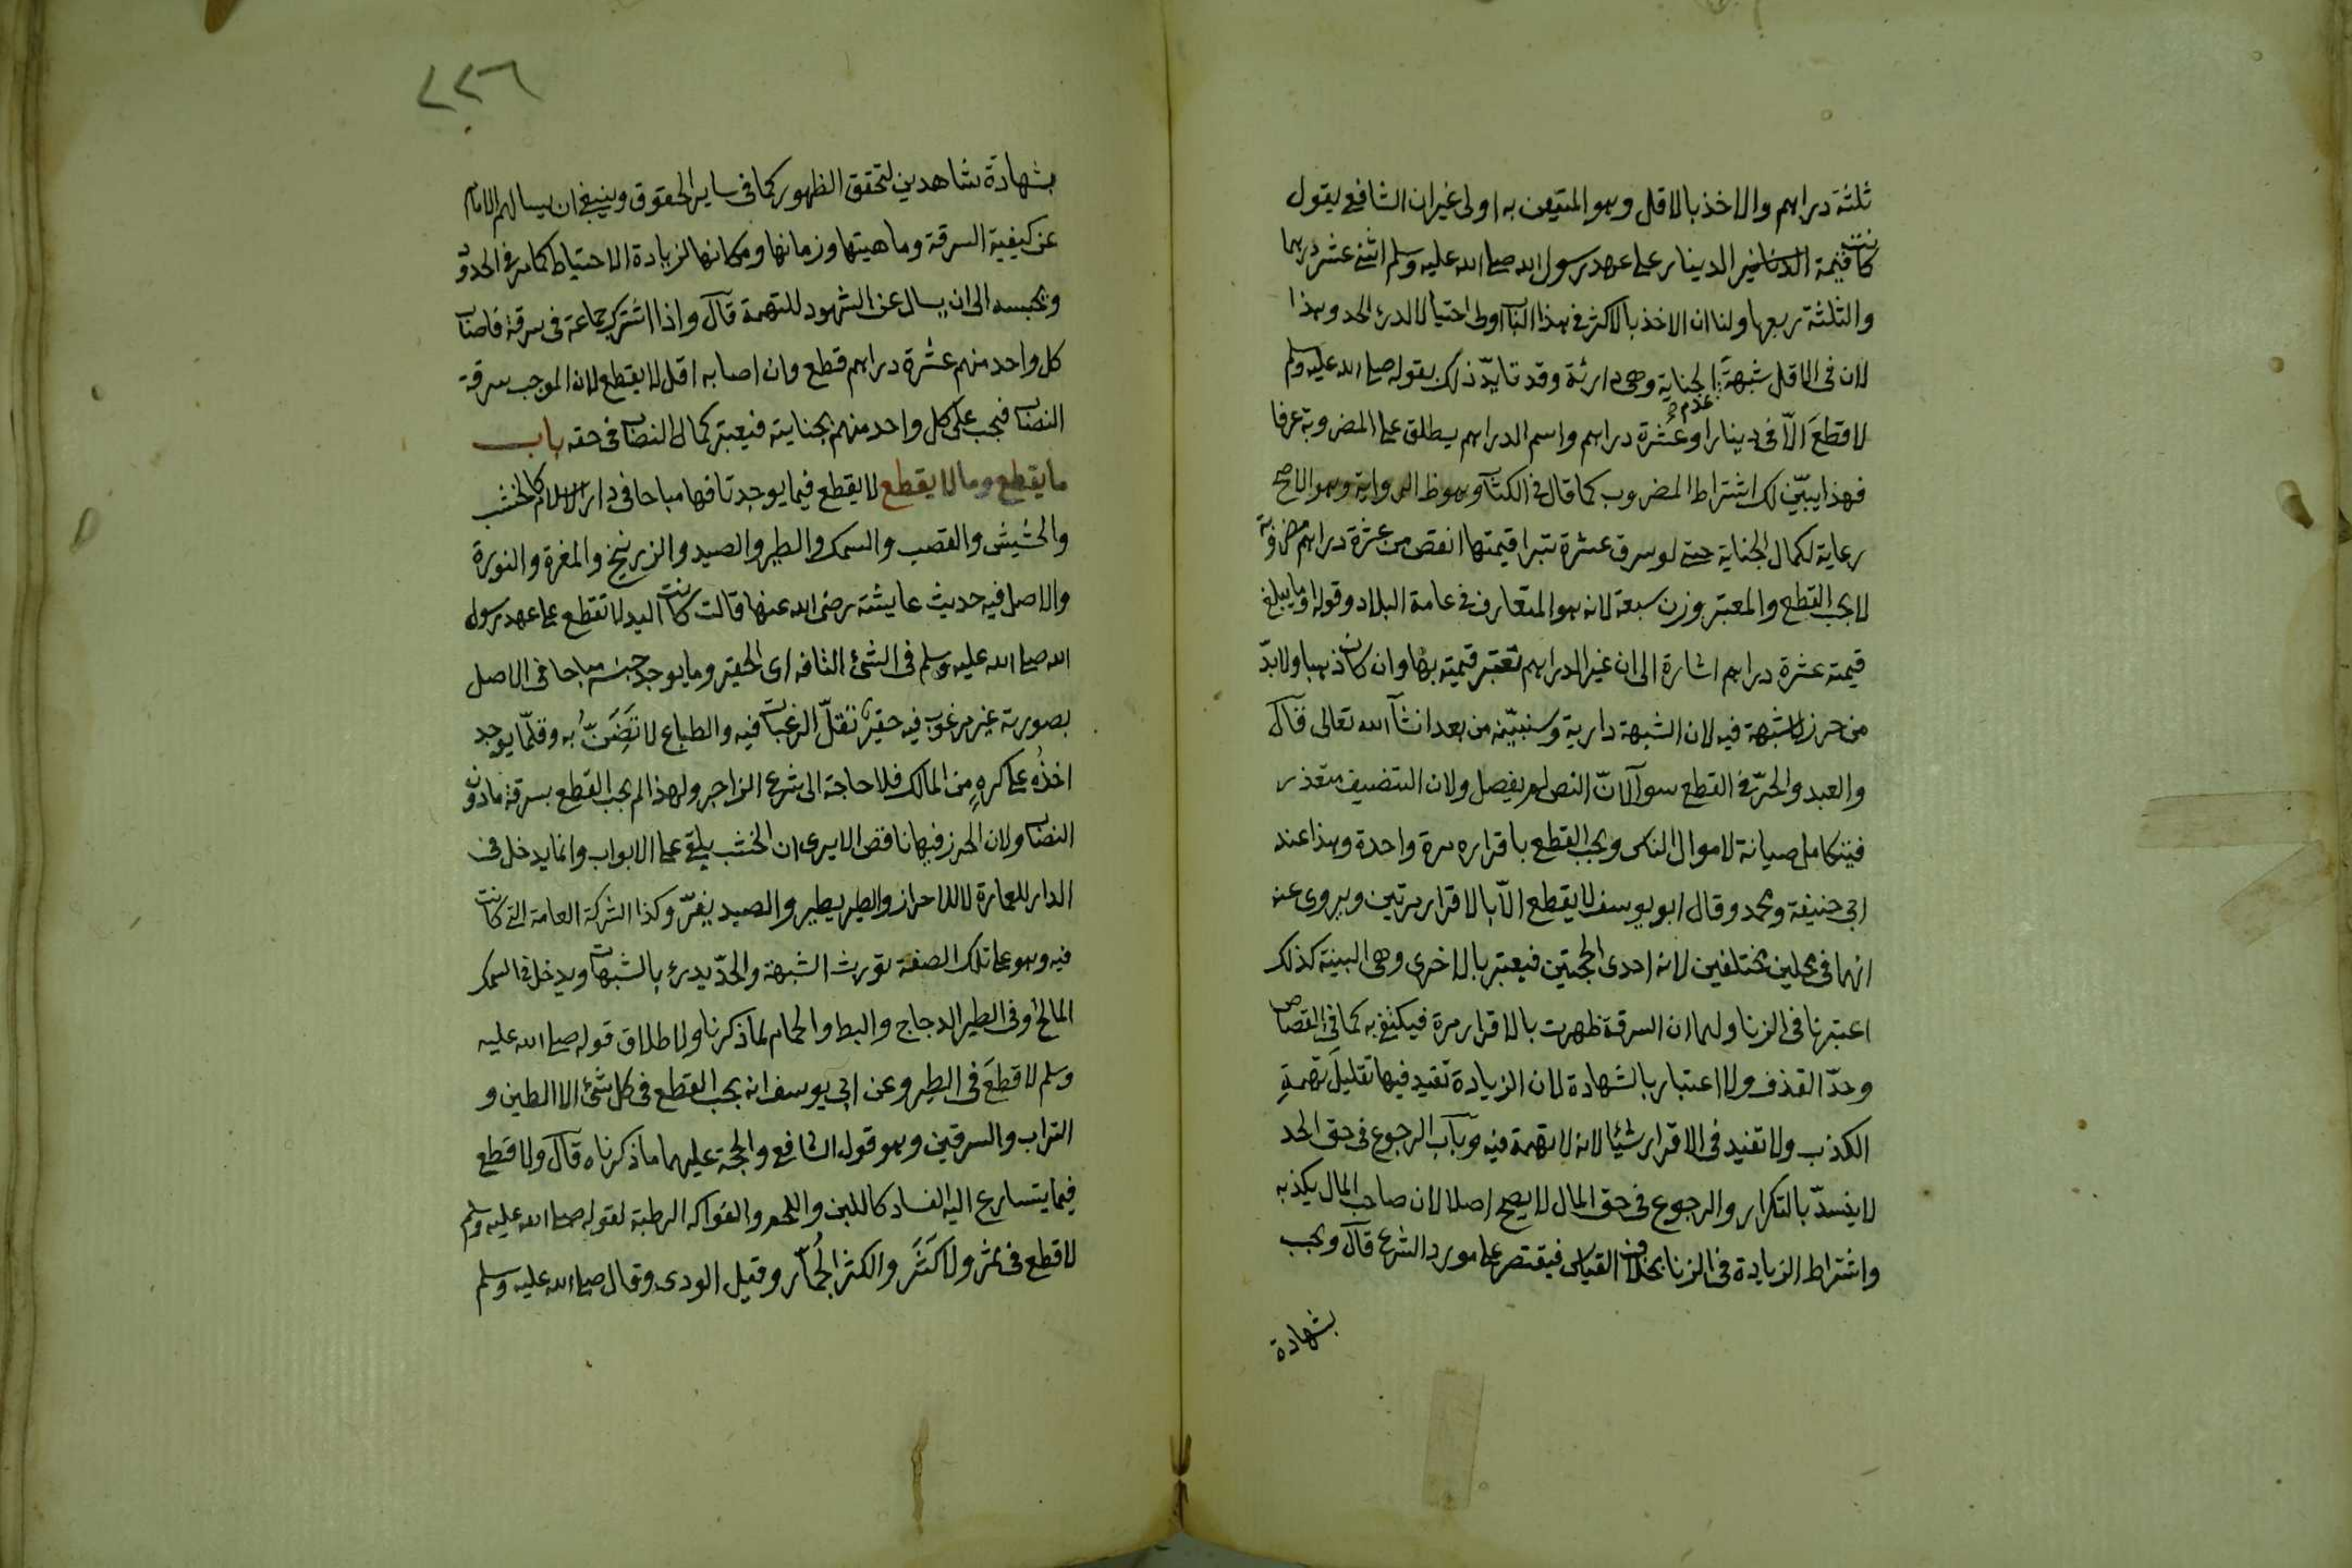 ثلثة دراهم والاخذ بالاقل وهو المتيقن به اولى غير ان الشافعي يقول
كانت قيمة الدينار على عهد رسول الله صلى الله عليه وسلم اثنى عشر درهما
والثلثة ربعها ولنا ان الاخذ بالاكثر في هذا الباب اولى احتيالا لدرئ الحد وهذا
لان في الاقل شبهة عدم الجناية وهي دارئة وقد تايّد ذلك بقوله صلى الله عليه وسلم
لا قطعَ الّا في دينار او عشرة دراهم واسم الدراهم يطلق على المضروبة عرفا
فهذا يبيّن لك اشتراط المضروب كما قال في الكتاب وهو ظ الرواية وهو الاصح
رعاية لكمال الجناية حتى لو سرق عشرة تبرا قيمتها انقص من عشرة دراهم مضروبة
لا يجب القطع والمعتبر وزن سبعة لانه هو المتعارف في عامة البلاد وقوله او ما يبلغ
قيمته عشرة دراهم اشارة الى ان غير الدراهم تعتبر قيمته بها وان كان ذهبا ولا بدّ
من حرز لا شبهة فيه لان الشبهة دارية وسنبيّنه من بعد انشآ الله تعالى قال
والعبد والحرّ في القطع سوآ لانّ النص لم يفصل ولان التنصيف متعذر
فيتكامل صيانة لاموال الناس ويجب القطع باقراره مرة واحدة وهذا عند
ابي حنيفة ومحمد وقال ابو يوسف لا يقطع الّا بالاقرار مرتين ويروى عنه
انهما في مجلين مختلفين لانه احدى الحجتين فيعتبر بالاخرى وهي البينة كذلك
اعتبرنا في الزنا ولهما ان السرقة ظهرت بالاقرار مرة فيكتفى به كما في القصاص
وحدّ القذف ولا اعتبار بالشهادة لان الزيادة تفيد فيها تقليلَ تهمةِ
الكذب ولا تفيد في الاقرار شيئا لانه لا تهمة فيه وباب الرجوع في حق الحد
لا ينسدّ بالتكرار والرجوع في حق المال لا يصح اصلا لان صاحب المال يكذبه
واشتراط الزيادة في الزنا بخلاف القياس فيقتصر على مورد الشرع قال ويجب
بشهادة
٢٢٦
بشهادة شاهدين لتحقق الظهور كما في ساير الحقوق وينبغي ان يسالهم الامام
عن كيفية السرقة وماهيتها وزمانها ومكانها لزيادة الاحتياط كما مر في الحدود
ويحبسه الى ان يسال عن الشهود للتهمة قال واذا اشترك جماعة في سرقة فاصاب
كل واحد منهم عشرة دراهم قطع وان اصابه اقل لا يقطع لان الموجب سرقة
النصاب فيجب على كل واحد منهم بجنايته فيعتبر كمال النصاب في حقه باب
ما يقطع وما لا يقطع لا يقطع فيما يوجد تافها مباحا في دار الاسلام كالخشب
والحشيش والقصب والسمك والطير والصيد والزرنيخ والمغرة والنورة
والاصل فيه حديث عايشة رضى الله عنها قالت كانت اليد لا تقطع على عهد رسول
الله صلى الله عليه وسلم في الشئ التافه اى الحقير وما يوجد جنسه مباحا في الاصل
بصورته غير مرغوب فيه حقير تقلّ الرغبات فيه والطباع لا تَضَنُّ به وقلّما يوجد
اخذُه على كرهٍ من المالك فلا حاجة الى شرع الزاجر ولهذا لم يجب القطع بسرقة ما دون
النصاب ولان الحرز فيها ناقص الا يرى ان الخشب يلقى على الابواب وانما يدخل في
الدار للعمارة لا للاحراز والطير يطير والصيد يفرّ وكذا الشركة العامة التي كانت
فيه وهو على تلك الصفة تورث الشبهة والحدّ يدرئ بالشبهات ويدخل في السمك
المالح وفي الطير الدجاج والبط والحمام لما ذكرنا ولاطلاق قوله صلى الله عليه
وسلم لا قطعَ في الطير وعن ابي يوسف انه يجب القطع في كل شئ الا الطين و
التراب والسرقين وهو قول الشافعي والحجة عليهما ما ذكرناه قال ولا قطع
فيما يتسارع اليه الفساد كاللبن واللحم والفواكه الرطبة لقوله صلى الله عليه وسلم
لا قطع في ثمر ولا كَثَرَ والكثر الجُمّار وقيل الودى وقال صلى الله عليه وسلم